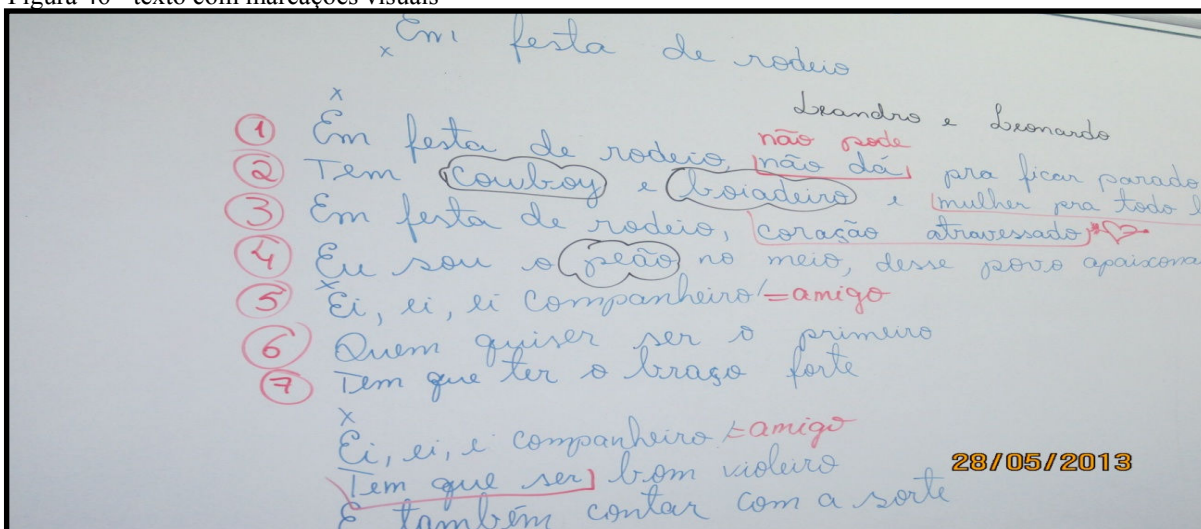 Figura 46 - texto com marcações visuais
x Em festa de rodeio
Leandro e Leonardo
x
não pode
1 Em festa de rodeio, não dá pra ficar parado
2 Tem cowboy e boiadeiro e mulher pra todo
3 Em festa de rodeio, coração atravessado
4 Eu sou o peão no meio, desse povo
x
5 Ei, ei, ei companheiro! = amigo
6 Quem quiser ser o primeiro
7 Tem que ter o braço forte
x
Ei, ei, e companheiro = amigo
Tem que ser bom violeiro
E também contar com a sorte
28/05/2013